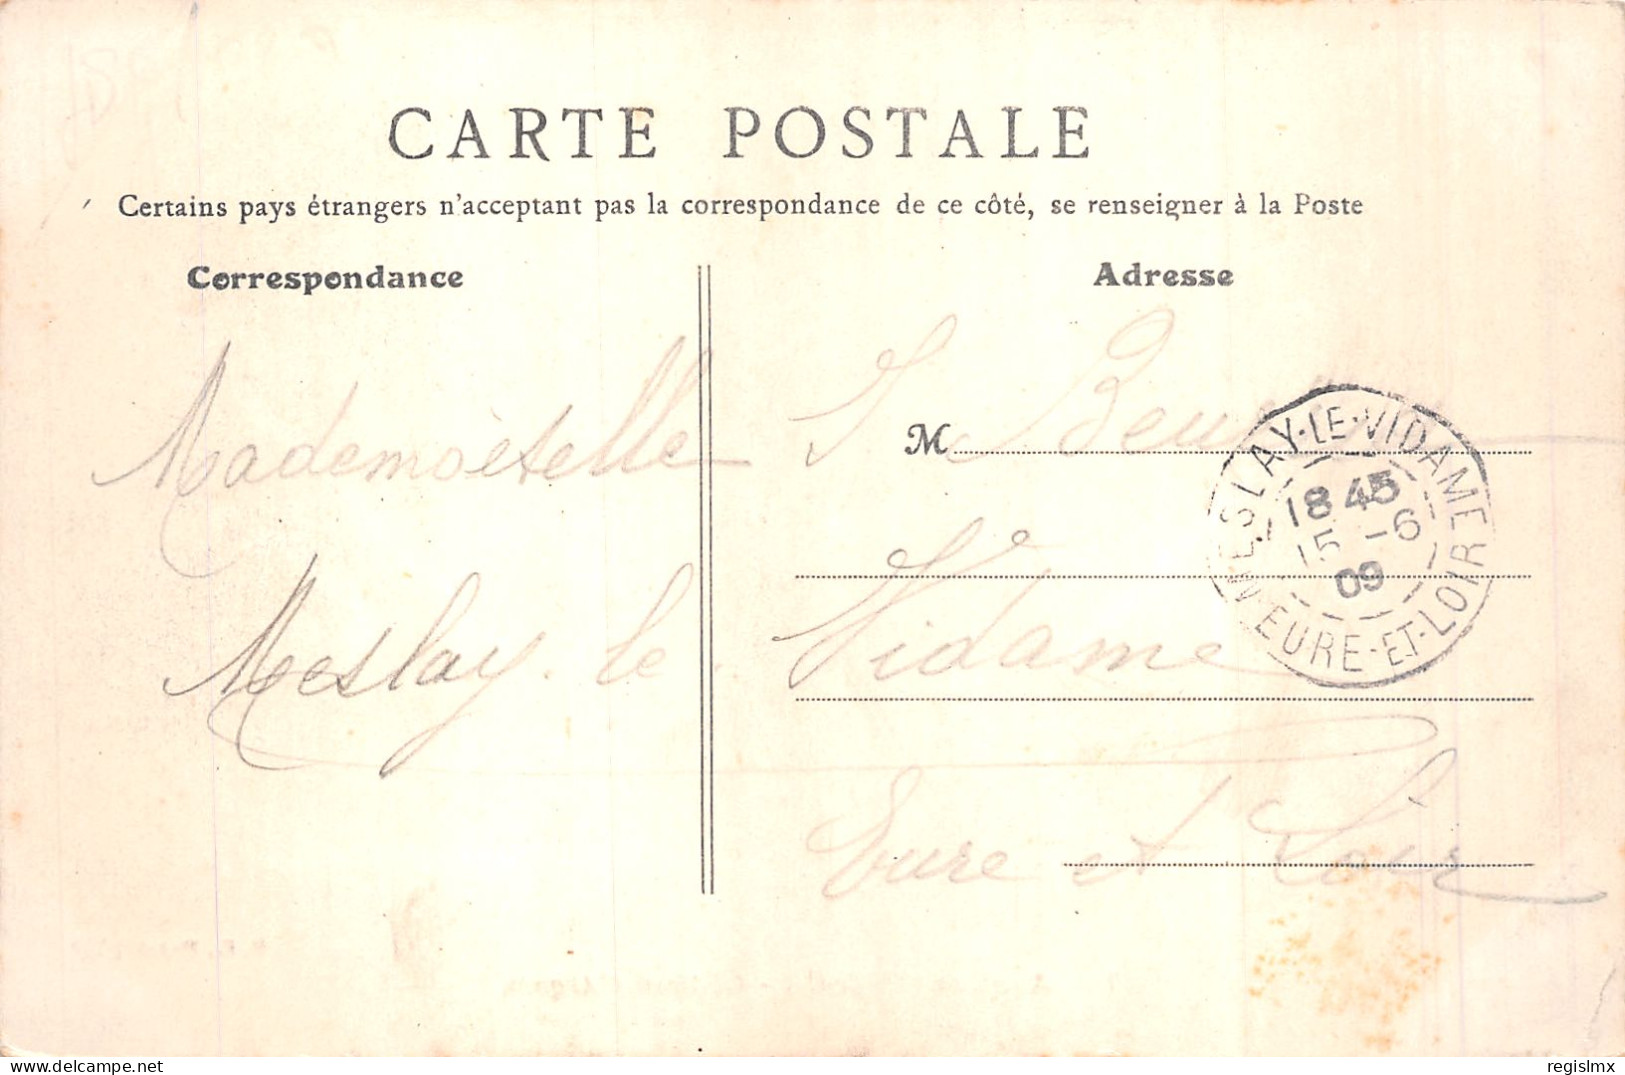 CARTE POSTALE
Certains pays étrangers n'acceptant pas la correspondance de ce côté, se renseigner à la Poste
Correspondance
Adresse
M
Mademoiselle J.
Meslay le Vidame
Eure et Loir
MESLAY-LE-VIDAME
18 45
15 -6
09
EURE-ET-LOIR
delcampe.net
regislmx